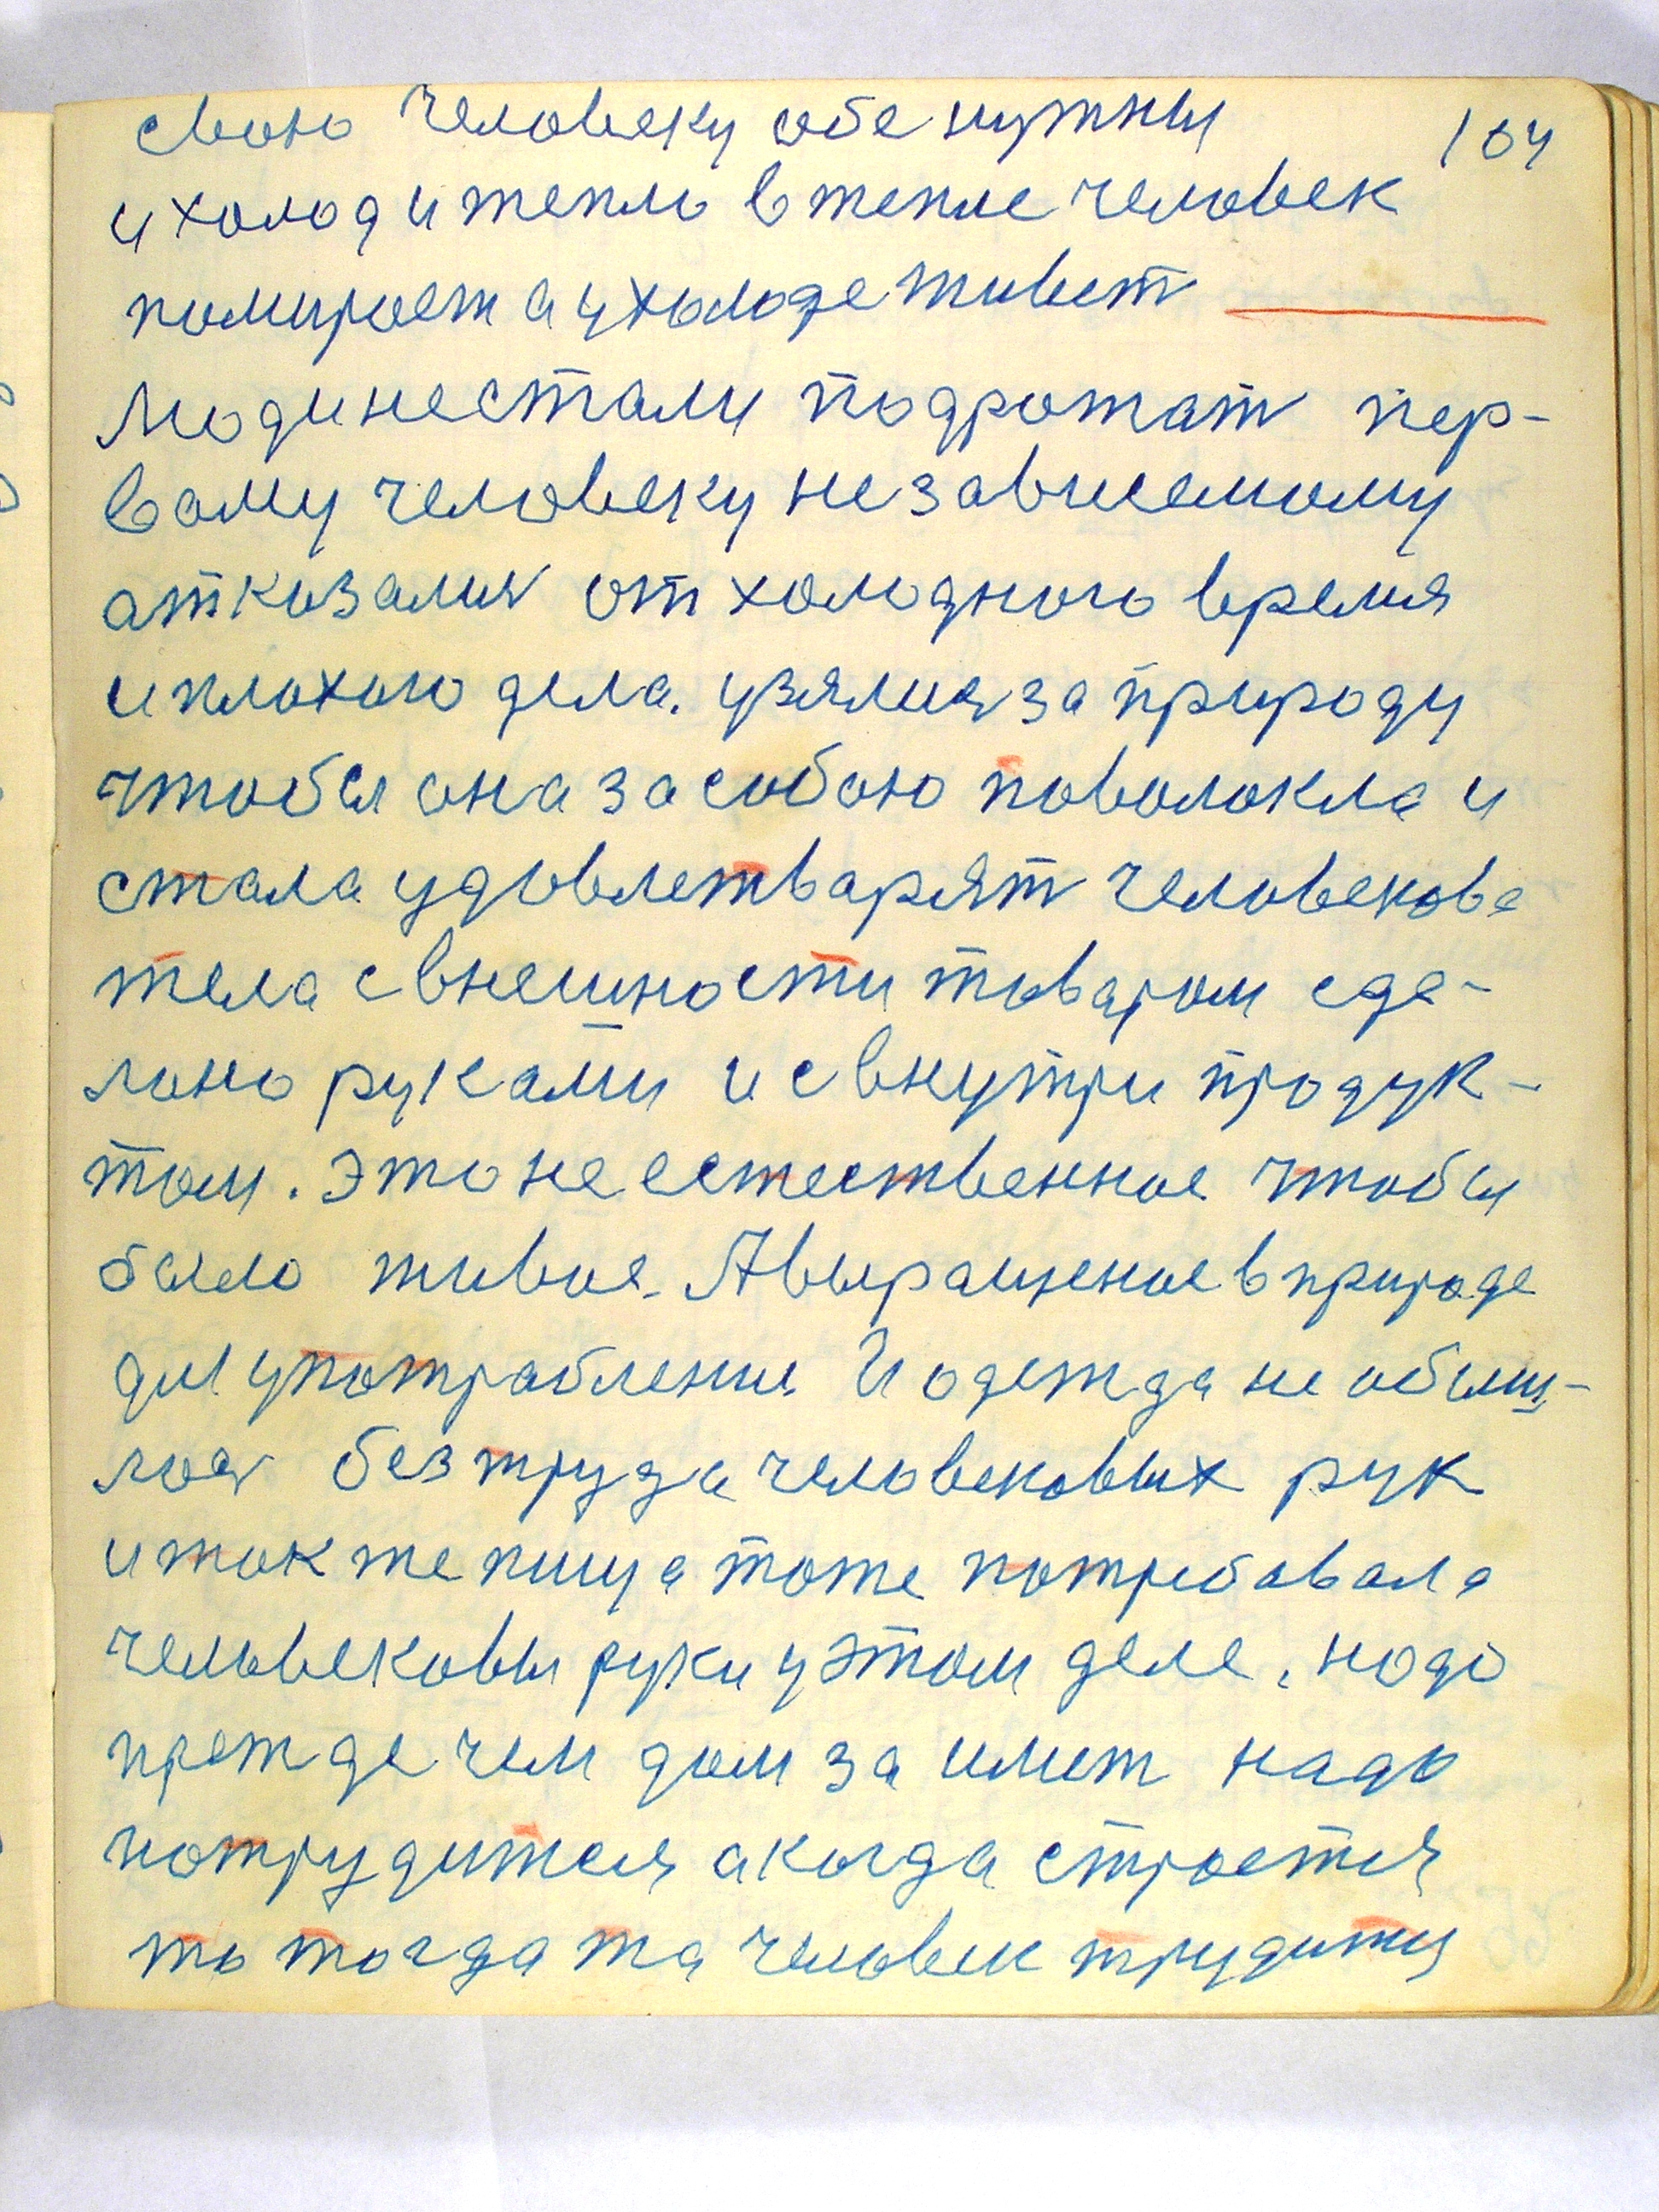 свою человеку обе нужны 104
и холод и тепло в тепле человек
помироет а у холоде живет
Люди не стали подрожат пер-
вому человеку независемому
отказалис от холодного время
и плохого дела. узялися за природу
чтобы она за собою поволокла и
стала удовлетварят человекова
тела с внешности товаром сде-
лоно руками и с внутри продук-
том. это не естественное чтобы
было живое. А выращеное в природе
для употрабления. И одежда не обыш-
лося без труда человековых рук
и ток же пища тоже потребовала
человековы руки у этом деле. нодо
прежде чем дом заимет надо
потрудится а когда строется
то тогда та человек трудится